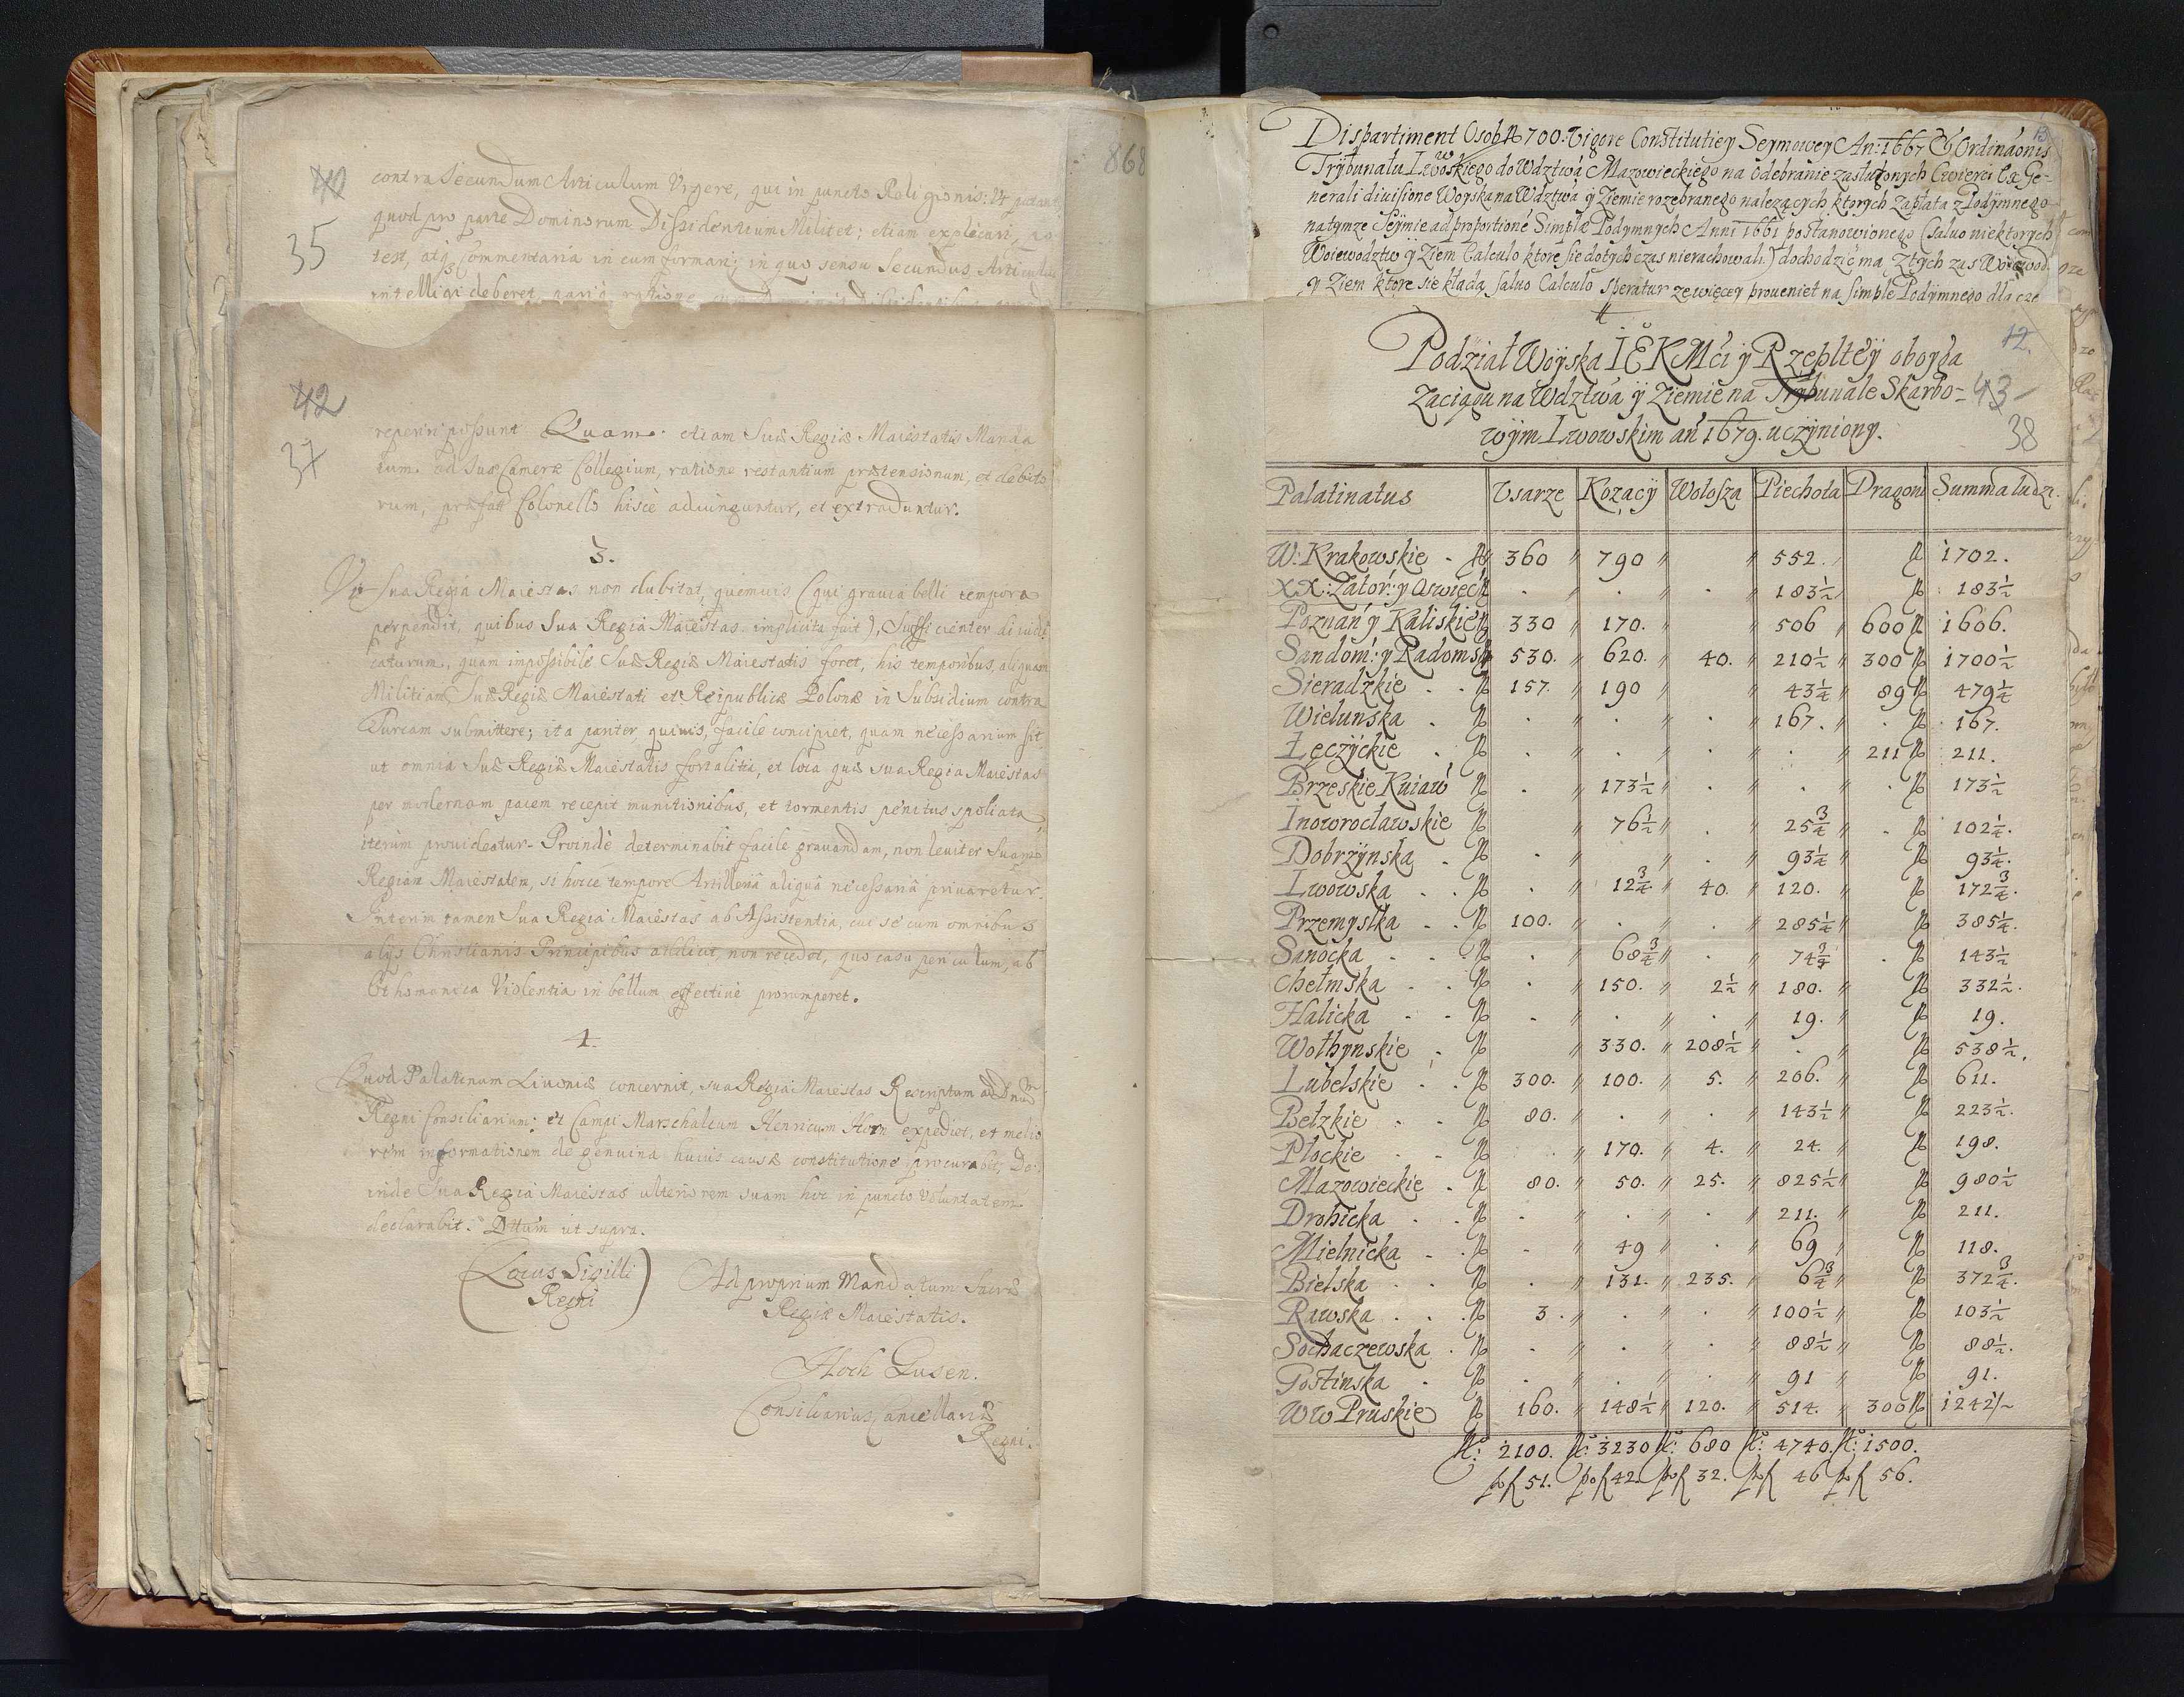 868
40
35
contra Secundum Articulum Urgere, qui in puncto Religionis: Ut putant
quod pro parte Dominorum Dissidentium Militet; etiam explicari, po
test, atq Commentaria in eum formari; in quo sensu Secundus Articulus
intelligi deberet, pari ratione
42
37
reperiri possunt Quam. etiam Suæ Regiæ Maiestatis Manda
tum. ad Suæ Cameræ Collegium, ratione restantium prætensionum, et debito
rum, præfato Colonello hisce adiunguntur, et extraduntur.
3.
Ut Sua Regia Maiestas non dubitat, quemuis (qui grauia belli tempora
perpendit, quibus Sua Regia Maiestas implicita fuit), Sufficienter diiudi
caturum, quam impossibile Suæ Regiæ Maiestatis foret, his temporibus, aliquam
Militiam Suæ Regiæ Maiestati et Reipublicæ Polonæ in Subsidium contra
Turcam submittere; ita pariter, quiuis, facile concipiet, quam necessarium sit
ut omnia Suæ Regiæ Maiestatis fortalitia, et loca quæ sua Regia Maiestas
per modernam pacem recepit munitionibus, et tormentis penitus spoliata
iterùm prouideatur. Proindè determinabit facile grauandam, non leuiter Suam
Regiam Maiestatem, si hocce tempore Artilleriâ aliquâ necessariâ priuaretur.
Interim tamen Sua Regia Maiestas ab Assistentia, cui se cum omnibus
alijs Christianis Principibus addicit, non recedet, quo casu periculum, ab
Othomanica Violentia in bellum effectiuè prorumperet.
4.
Quod Palatinum Liuoniæ concernit, sua Regia Maiestas Rescriptum ad Dnum
Regni Consiliarium: et Campi Marschalcum Henricum Horn expediet, et melio
rem informationem de genuina huius causæ constitutione procurabit, De
inde Sua Regia Maiestas ulteriorem suam hoc in puncto Voluntatem
declarabit. Dttum ut supra.
Locus Sigilli
Regni
Ad proprium Mandatum Sacræ
Regiæ Maiestatis.
Hoch Gusen.
Consiliarius Cancellariæ
Regni.
13
Dispartiment Osob No 700. Vigore Constitutiey Seymowey An: 1667 & Ordinaonis
Trybunału Lwowskiego do Wdztwa Mazowieckiego na odebranie zasłużonych Cwierci Ex Ge-
nerali diuisione Woyska na Wdztwa y Ziemie rozebranego nalezących ktorych zapłata z Podymnego
na tymze Seymie ad proportione Simplæ Podymnych Anni 1661 postanowionego (saluo niektorych
Woiewodztw y Ziem Calculo ktore sie dotychczas nierachowali) dochodzić ma, Z tych zas Woiewod.
y Ziem ktore sie kładą, saluo Calculo speratur ze więcey proueniet na simple Podymnego dla cze
12.
Podział Woyska IEKMci y Rzeplteÿ oboyga
zaciągu na Wdztwa ÿ Ziemie na Trybunale Skarbo-
43
wÿm Lwowskim an 1679. uczÿniony.
38
Palatinatus Vsarze Kozacÿ Wołosza Piechota Dragoni Summa ludzi.
W: Krakowskie - No 360 790 552. No 1702.
XX: Zator: y Oswięc No . . . 183½ No 183½
Poznań y Kaliskie No 330 170. 506 600 No 1606.
Sandom: y Radoms No 530. 620. 40. 210½ 300 No 1700½
Sieradzkie . . No 157. 190 43¼ 89 No 479¼
Wielunska . No . . . 167. . No 167.
Łęczÿckie . No . . . . 211 No 211.
Brzeskie Kuiaw No . 173½ . . . No 173½
Inowrocławskie No 76½ . 25¾ . No 102¼.
Dobrzÿnska . No . . 93¼ No 93¼.
Lwowska . . No . 12¾ 40. 120. No 172¾.
Przemyslka . . No 100. . . 285¼ No 385¼.
Sanocka . . No . 68¾ . 74¾ . No 143½
Chełmska . . No . 150. 2½ 180. No 332½.
Halicka . . No . . . 19. No 19.
Wołhynskie . No 330. 208½ . No 538½.
Lubelskie . . No 300. 100. 5. 206. No 611.
Bełzkie . . No 80. . . 143½ No 223½.
Płockie . . No . 170. 4. 24. No 198.
Mazowieckie . No 80. 50. 25. 825½ No 980½
Drohicka . . No . . . 211. No 211.
Mielnicka . . No . 49 . 69 No 118.
Bielska . . No . 131. 235. 6¾ No 372¾.
Rawska . . . No 3. . . 100½ No 103½
Sochaczewska . No . . . 88½ No 88½.
Gostinska . No . . . 91 No 91.
WW Pruskie No 160. 148½ 120. 514. 300 No 1242½
No: 2100. No: 3230 No: 680 No: 4740. No: 1500.
po f 51. po f 42. po f 32. po f 46 po f 56.